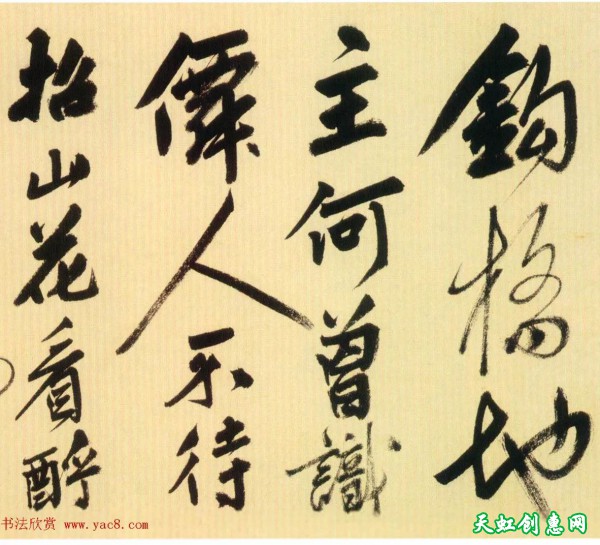 地
主何曾識
人不待
招山花看
书法欣赏 www.yac8.com
天虹创惠网